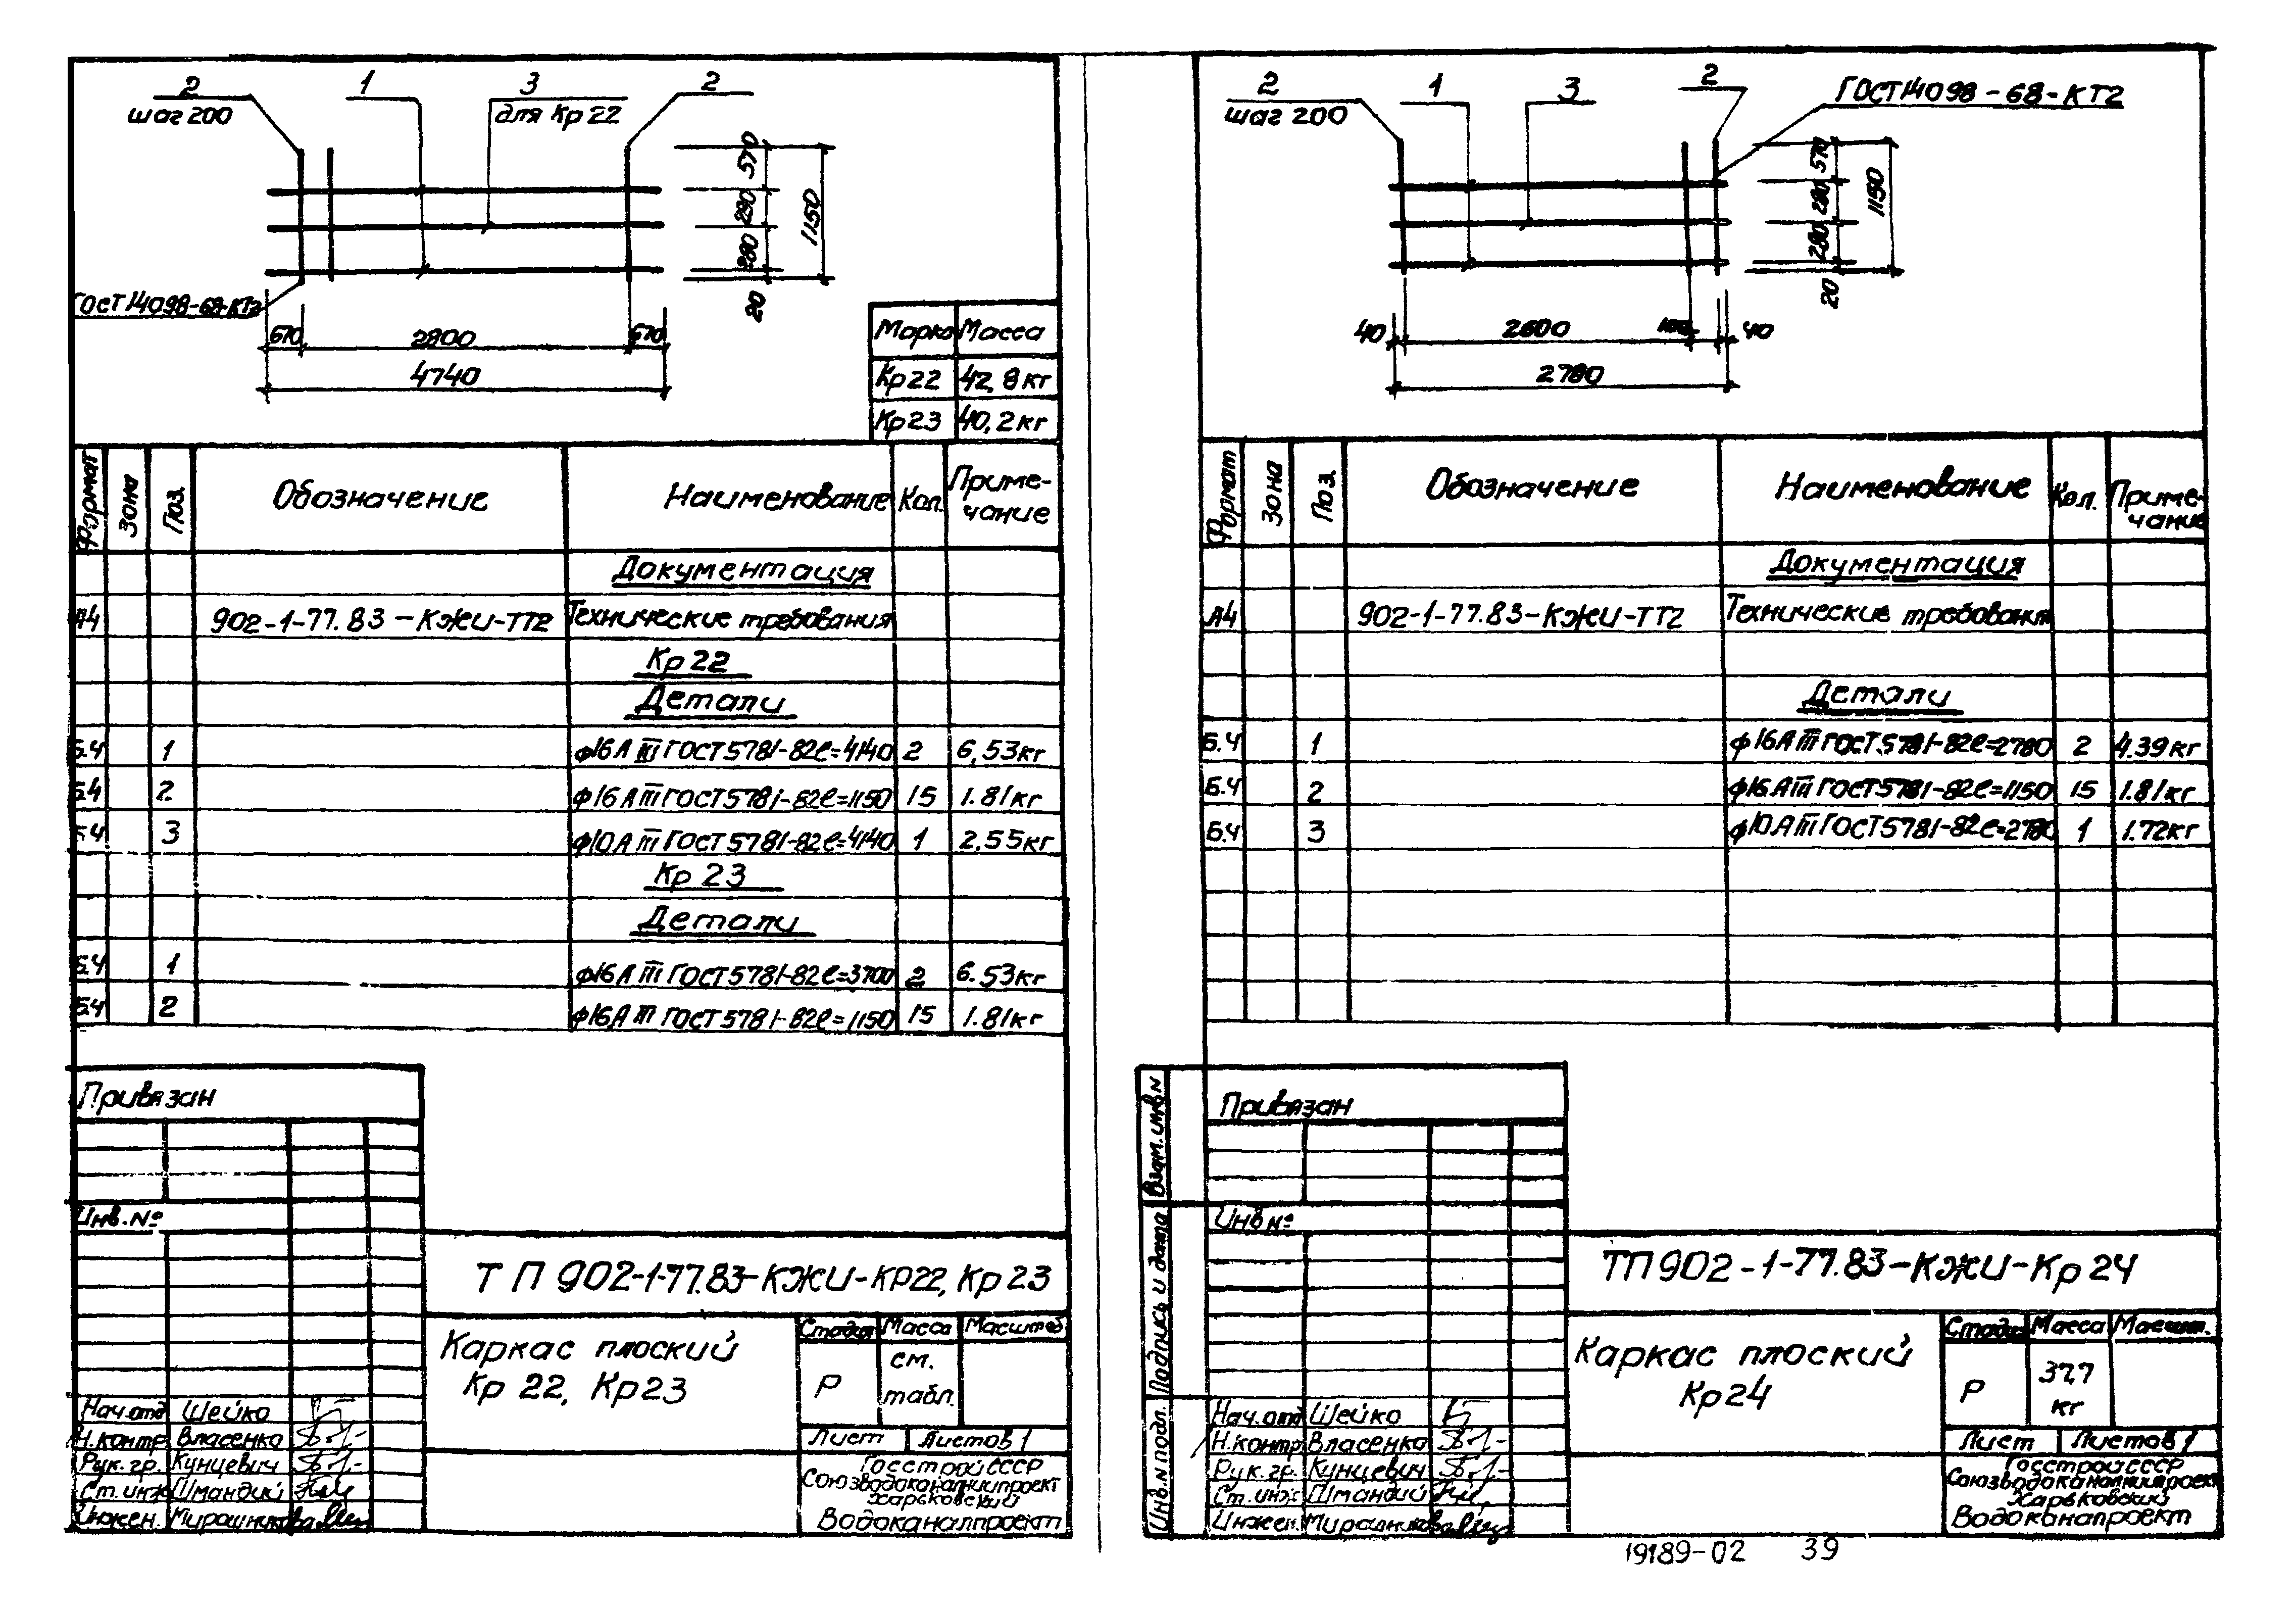 2
шаг 200
1
3
для Кр 22
2
570
290
280
20
1150
ГОСТ 14098-68-КТ2
670
2800
670
4740
Марка Масса
Кр22 42,8кг
Кр23 40,2кг
Формат Зона Поз. Обозначение Наименование Кол. Приме-
чание
Документация
А4 902-1-77.83-КЖИ-ТТ2 Технические требования
Кр 22
Детали
Б.Ч 1 ф16АIII ГОСТ5781-82 ℓ=4140 2 6,53кг
Б.Ч 2 ф16АIII ГОСТ5781-82 ℓ=1150 15 1.81кг
Б.Ч 3 ф10АIII ГОСТ5781-82 ℓ=4140 1 2.55кг
Кр 23
Детали
Б.Ч 1 ф16АIII ГОСТ5781-82 ℓ=3700 2 6.53кг
Б.Ч 2 ф16АIII ГОСТ5781-82 ℓ=1150 15 1.81кг
Привязан
Инв.№
ТП 902-1-77.83-КЖИ-КР22, Кр 23
Каркас плоский
Кр 22, Кр23
Стадия Масса Масштаб
Р см.
табл.
Лист Листов 1
Нач.отд Шейко
Н.контр Власенко
Рук.гр. Кунцевич
Ст.инж Шмандий
Инжен. Мирошникова
Госстрой СССР
Союзводоканалниипроект
Харьковский
Водоканалпроект
2
шаг 200
1
3
2
ГОСТ14098-68-КТ2
570
280
280
20
1150
40
2600
100
40
2780
Формат Зона Поз. Обозначение Наименование Кол. Приме-
чание
Документация
А4 902-1-77.83-КЖИ-ТТ2 Технические требования
Детали
Б.Ч 1 ф16АIII ГОСТ5781-82 ℓ=2780 2 4.39кг
Б.Ч 2 ф16АIII ГОСТ5781-82 ℓ=1150 15 1.81кг
Б.Ч 3 ф10АIII ГОСТ5781-82 ℓ=2780 1 1.72кг
Привязан
Инв №
Взам. инв N
Подпись и дата
Инв.N подл.
ТП902-1-77.83-КЖИ-Кр 24
Каркас плоский
Кр24
Стадия Масса Масшт.
Р 37.7
кг
Лист Листов 1
Нач.отд Шейко
Н.контр Власенко
Рук.гр. Кунцевич
Ст.инж Шмандий
Инжен. Мирошникова
Госстрой СССР
Союзводоканалниипроект
Харьковский
Водоканалпроект
19189-02 39